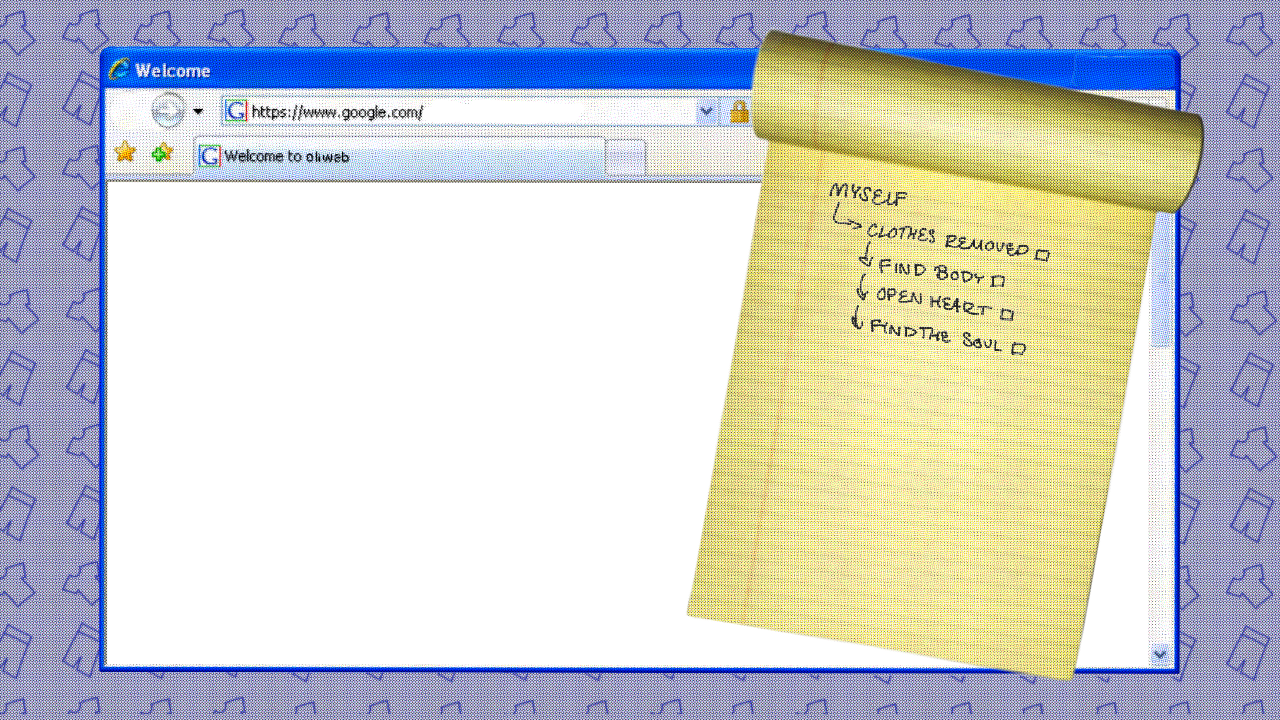 Welcome
https://www.google.com/
Welcome to oliweb
MYSELF
CLOTHES REMOVED
FIND BODY
OPEN HEART
FIND THE SOUL